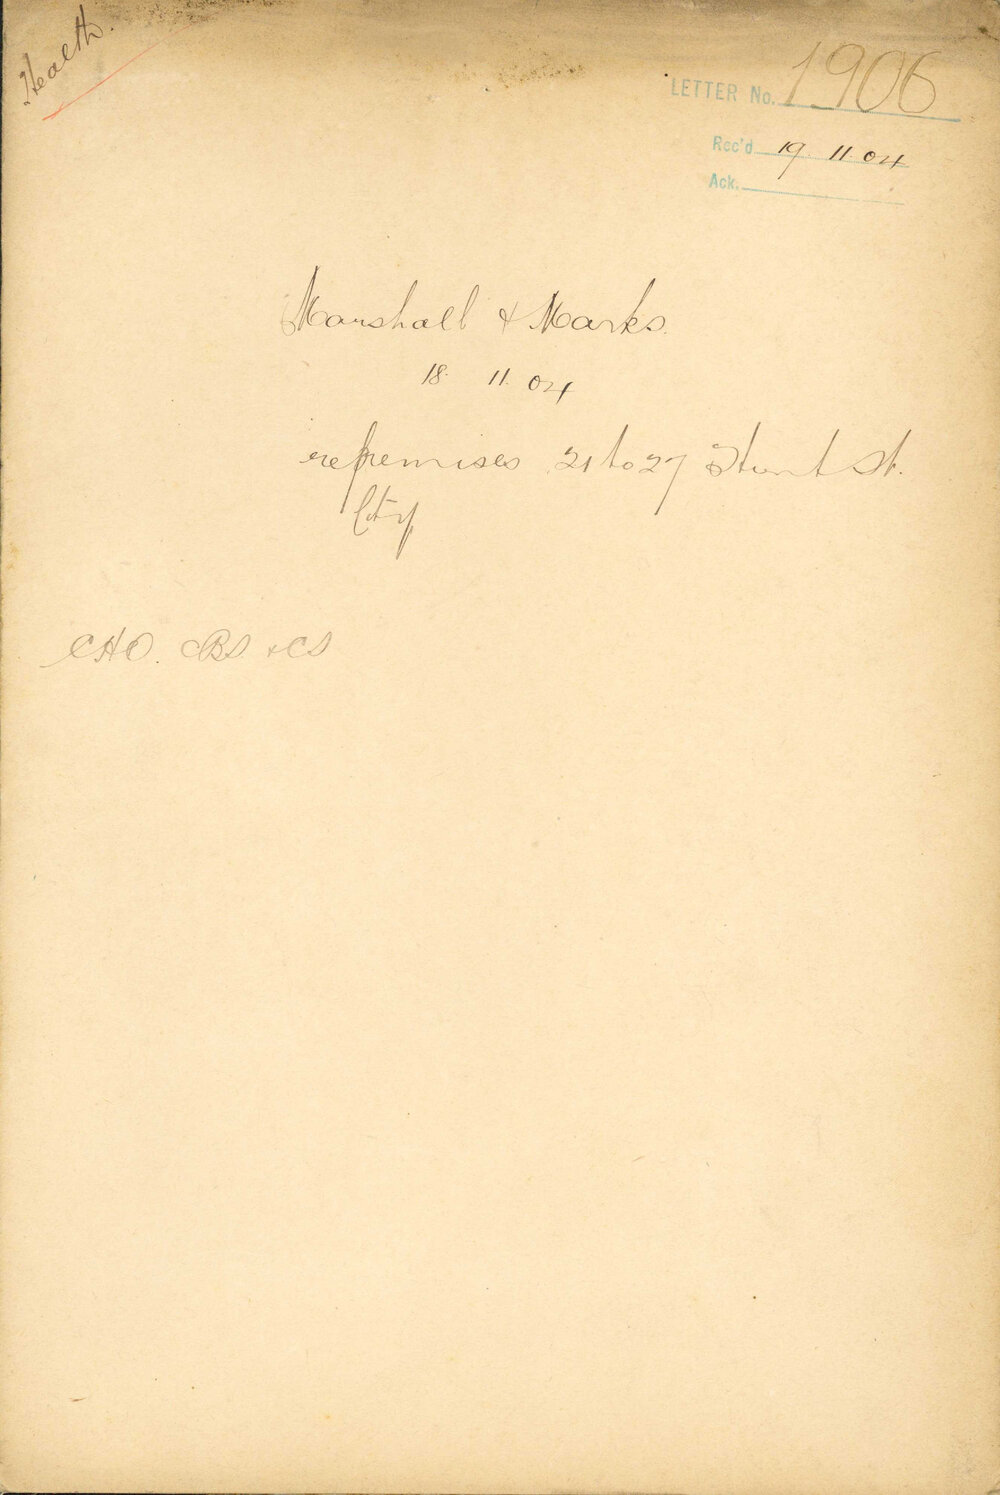 Health.
LETTER No. 1906
Rec'd 19 11 04
Ack.
Marshall & Marks.
18. 11. 04
re premises 21 to 27 Sturt St.
City
CHO. CBS & CS